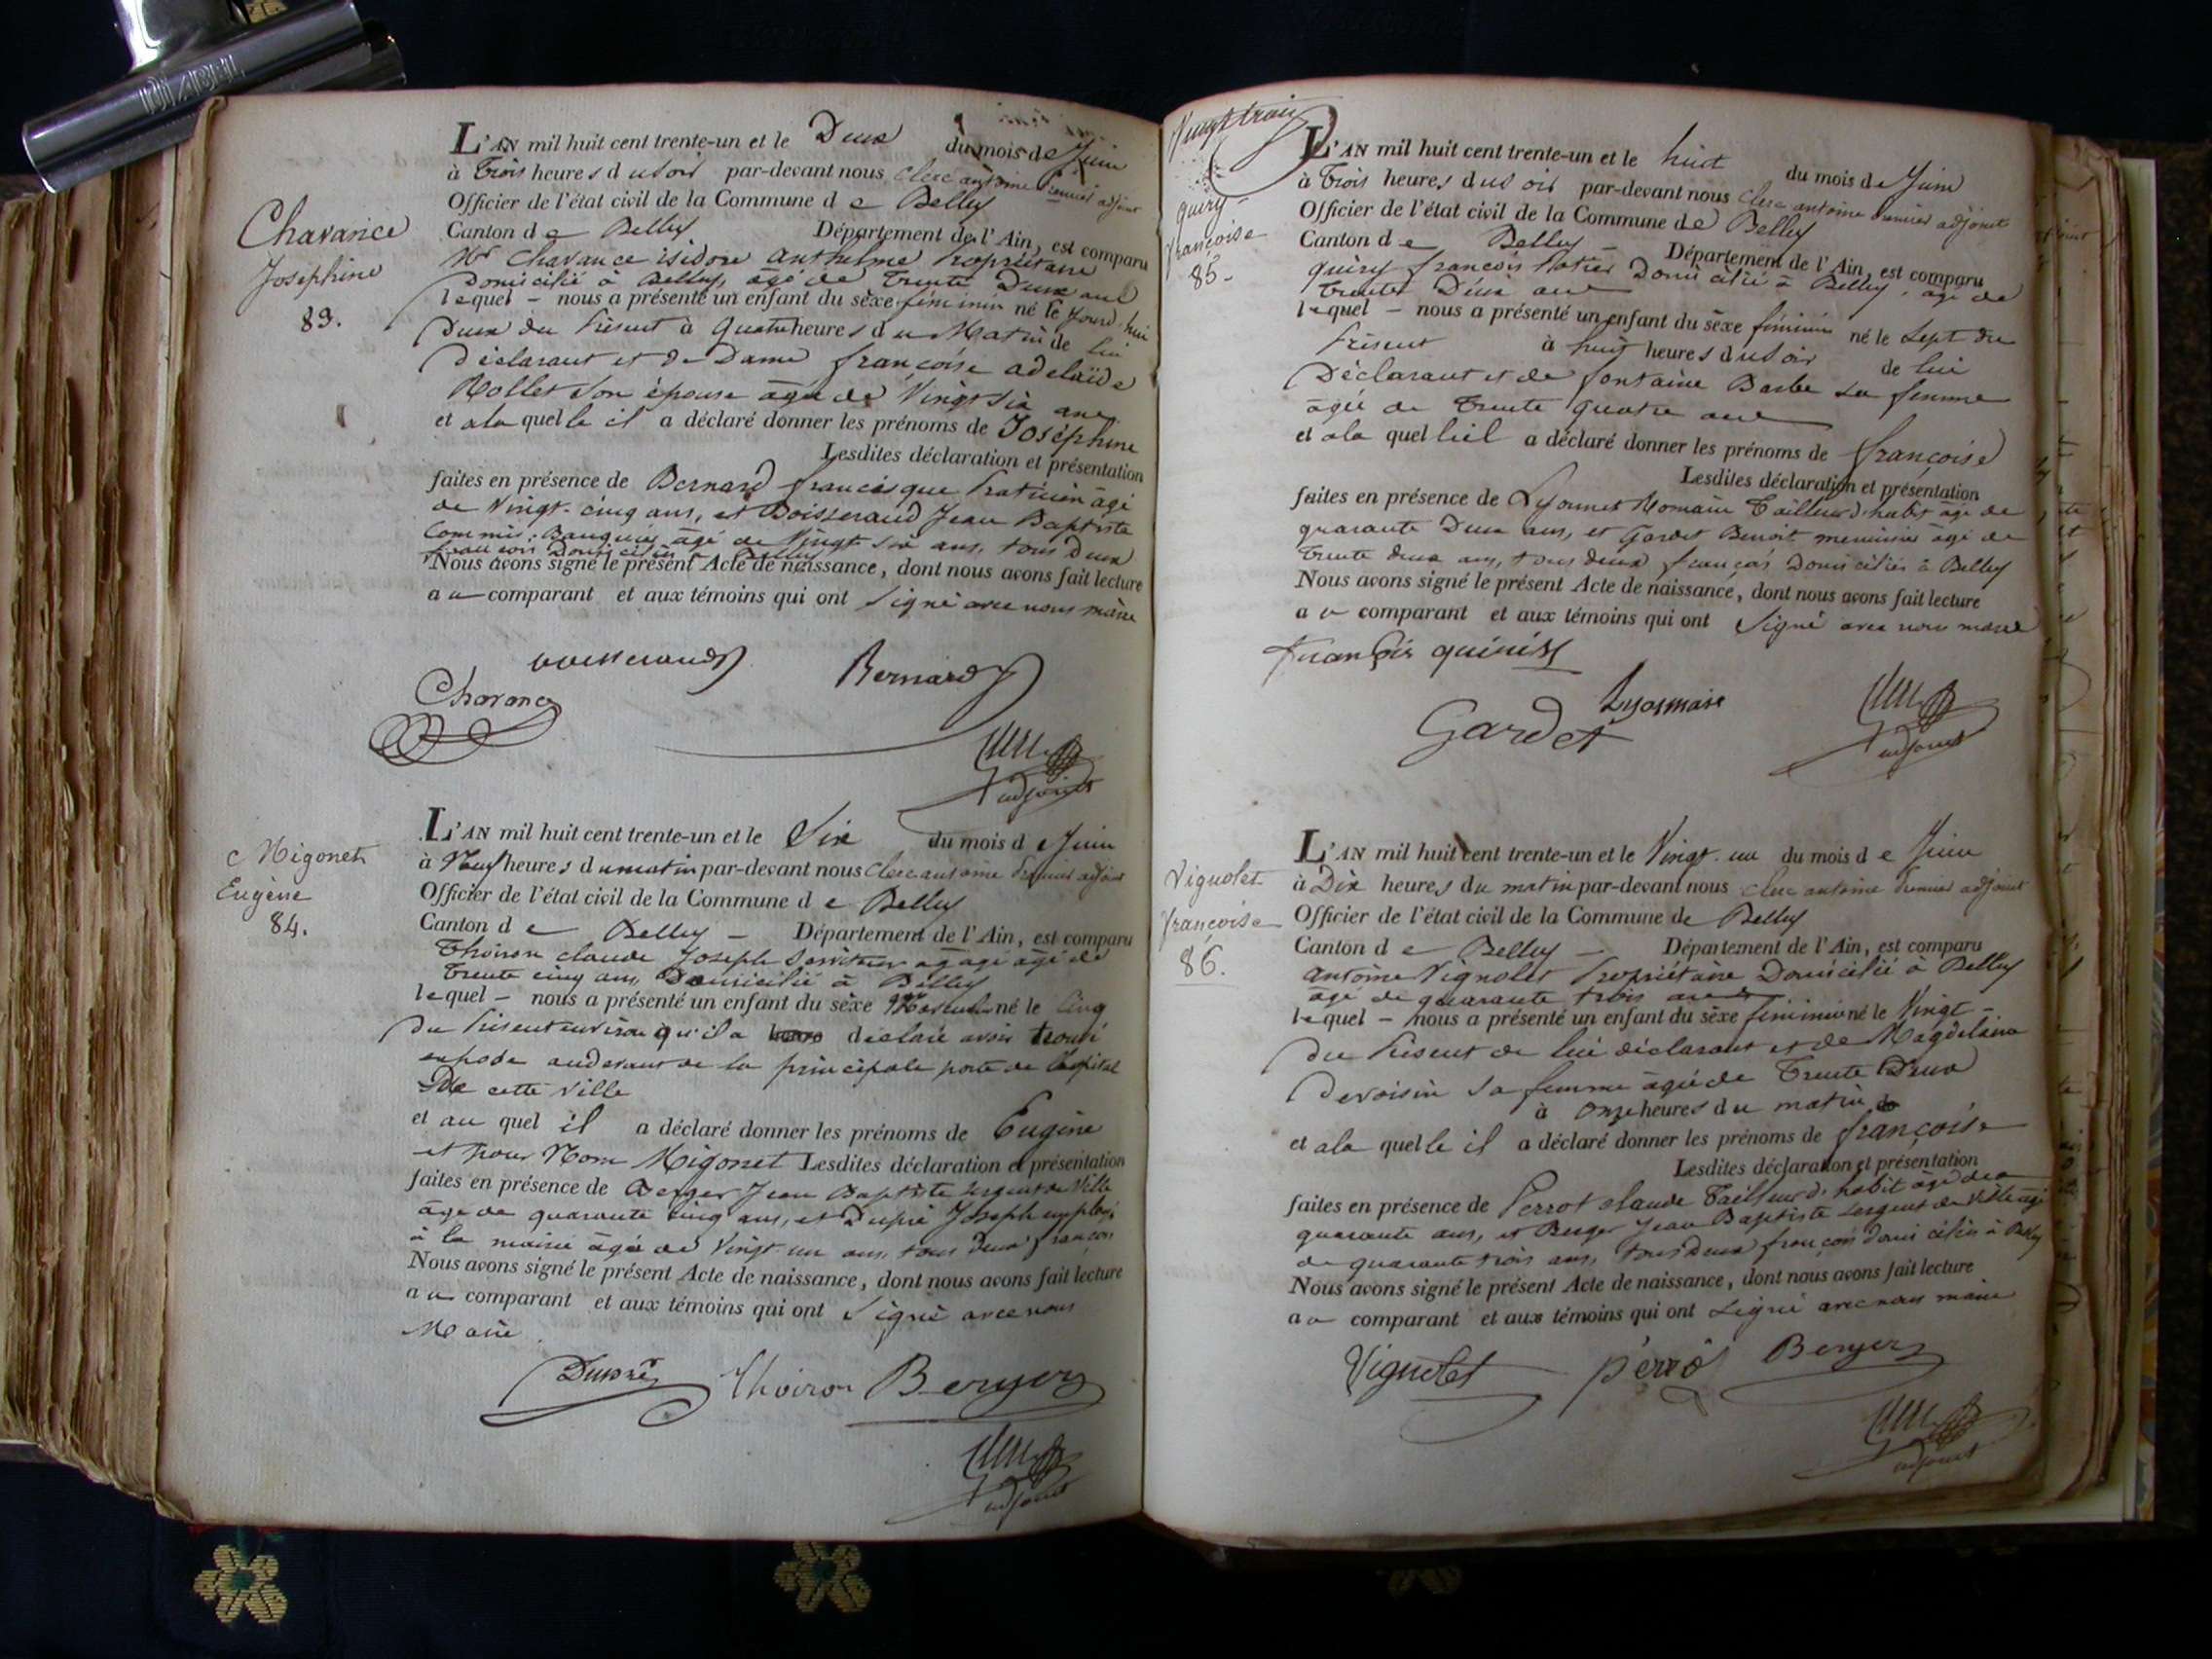 DIABEL
Chavance
Joséphine
83.
L'AN mil huit cent trente-un et le Deux du mois de Juin
à Trois heures du soir par-devant nous Clerc antoine premier adjoint
Officier de l'état civil de la Commune de Belley
Canton de Belley Département de l'Ain, est comparu
Mr Chavance isidore anthelme Propriétaire
Domicilié à Belley, âgé de Trente Deux ans
lequel - nous a présenté un enfant du sèxe féminin né le jourd'hui
Deux du Présent à Quatre heures du Matin de lui
Déclarant et de Dame françoise adelaïde
Rollet son épouse âgée de Vingt six ans
et a la quelle il a déclaré donner les prénoms de Joséphine
Lesdites déclaration et présentation
faites en présence de Bernard francisque Praticien âgé
de Vingt-cinq ans, et Boisserand Jean Baptiste
Commis Banquier, âgé de Vingt six ans, tous Deux
francois Domiciliés à Belley
Nous avons signé le présent Acte de naissance, dont nous avons fait lecture
au comparant et aux témoins qui ont signé avec nous maire
boisserand Bernard
Chavance
Clerc
adjoint
Migonet
Eugène
84.
L'AN mil huit cent trente-un et le Six du mois de Juin
à Neuf heures du matin par-devant nous Clerc antoine premier adjoint
Officier de l'état civil de la Commune de Belley
Canton de Belley - Département de l'Ain, est comparu
Thoiron claude Joseph âgé de
Trente cinq ans, Domicilié à Belley
lequel - nous a présenté un enfant du sèxe Masculin né le Cinq
du Présent environ qu'il a déclaré avoir trouvé
exposé audevant de la principale porte de l'hôpital
De cette ville
et au quel il a déclaré donner les prénoms de Eugène
et pour Nom Migonet Lesdites déclaration et présentation
faites en présence de Berger Jean Baptiste sergent de Ville
âgé de quarante cinq ans, et Dupré Joseph employé
à la mairie âgé de Vingt un ans, tous Deux françois
Nous avons signé le présent Acte de naissance, dont nous avons fait lecture
au comparant et aux témoins qui ont signé avec nous
Maire
Dupré Thoiron Berger
Clerc
adjoint
Vingt trois
quiry
françoise
85.
L'AN mil huit cent trente-un et le huit du mois de Juin
à Trois heures du soir par-devant nous Clerc antoine premier adjoint
Officier de l'état civil de la Commune de Belley
Canton de Belley - Département de l'Ain, est comparu
quiry francois Potier Domicilié à Belley, âgé de
Trente Deux ans
lequel - nous a présenté un enfant du sèxe féminin né le Sept du
Présent à huit heures du soir de lui
Déclarant et de fontaine Barbe sa femme
âgée de Trente quatre ans
et a la quelle il a déclaré donner les prénoms de françoise
Lesdites déclaration et présentation
faites en présence de Lyonnet Romain Tailleur d'habit âgé de
quarante Deux ans, et Gardet Benoit menuisier âgé de
Trente deux ans, tous deux françois Domiciliés à Belley
Nous avons signé le présent Acte de naissance, dont nous avons fait lecture
au comparant et aux témoins qui ont signé avec nous maire
Gardet
Clerc
adjoint
Vignolet
françoise
86.
L'AN mil huit cent trente-un et le Vingt-un du mois de Juin
à Dix heures du matin par-devant nous clerc antoine premier adjoint
Officier de l'état civil de la Commune de Belley
Canton de Belley - Département de l'Ain, est comparu
antoine Vignolet Propriétaire Domicilié à Belley
âgé de quarante trois ans
lequel - nous a présenté un enfant du sèxe féminin né le Vingt -
du Présent de lui déclarant et de Magdelaine
Devoisin sa femme âgée de Trente Deux
à onze heures du matin
et a la quelle il a déclaré donner les prénoms de françoise
Lesdites déclaration et présentation
faites en présence de Perrot claude Tailleur d'habit âgé de
quarante ans, et Berger Jean Baptiste sergent de Ville âgé
de quarante trois ans, tous deux françois domiciliés à Belley
Nous avons signé le présent Acte de naissance, dont nous avons fait lecture
au comparant et aux témoins qui ont signé avec nous maire
Vignolet Berger
Clerc
adjoint